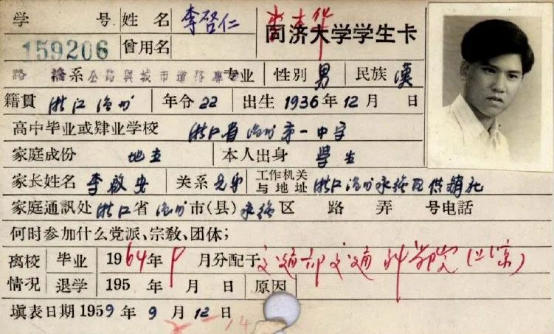 学号 159206 姓名 李啓仁
曾用名
同济大学学生卡
路 系 公路與城市道路 专业 性別 男 民族 漢
籍貫 浙江 年令 22 出生 1936年12月 日
高中毕业或肄业学校 浙江省 州第一中学
家庭成份 地主 本人出身 学生
家长姓名 李啟 关系 兄弟 工作机关与地址 浙江 供销社
家庭通訊处 浙江省 州市(县) 区 路 弄 号电話
何时参加什么党派、宗教、团体；
离校情况 毕业 1964年9月分配于交通部交通科学院(北京)
退学 195 年 月 日 原因
填表日期 1959年9月12日